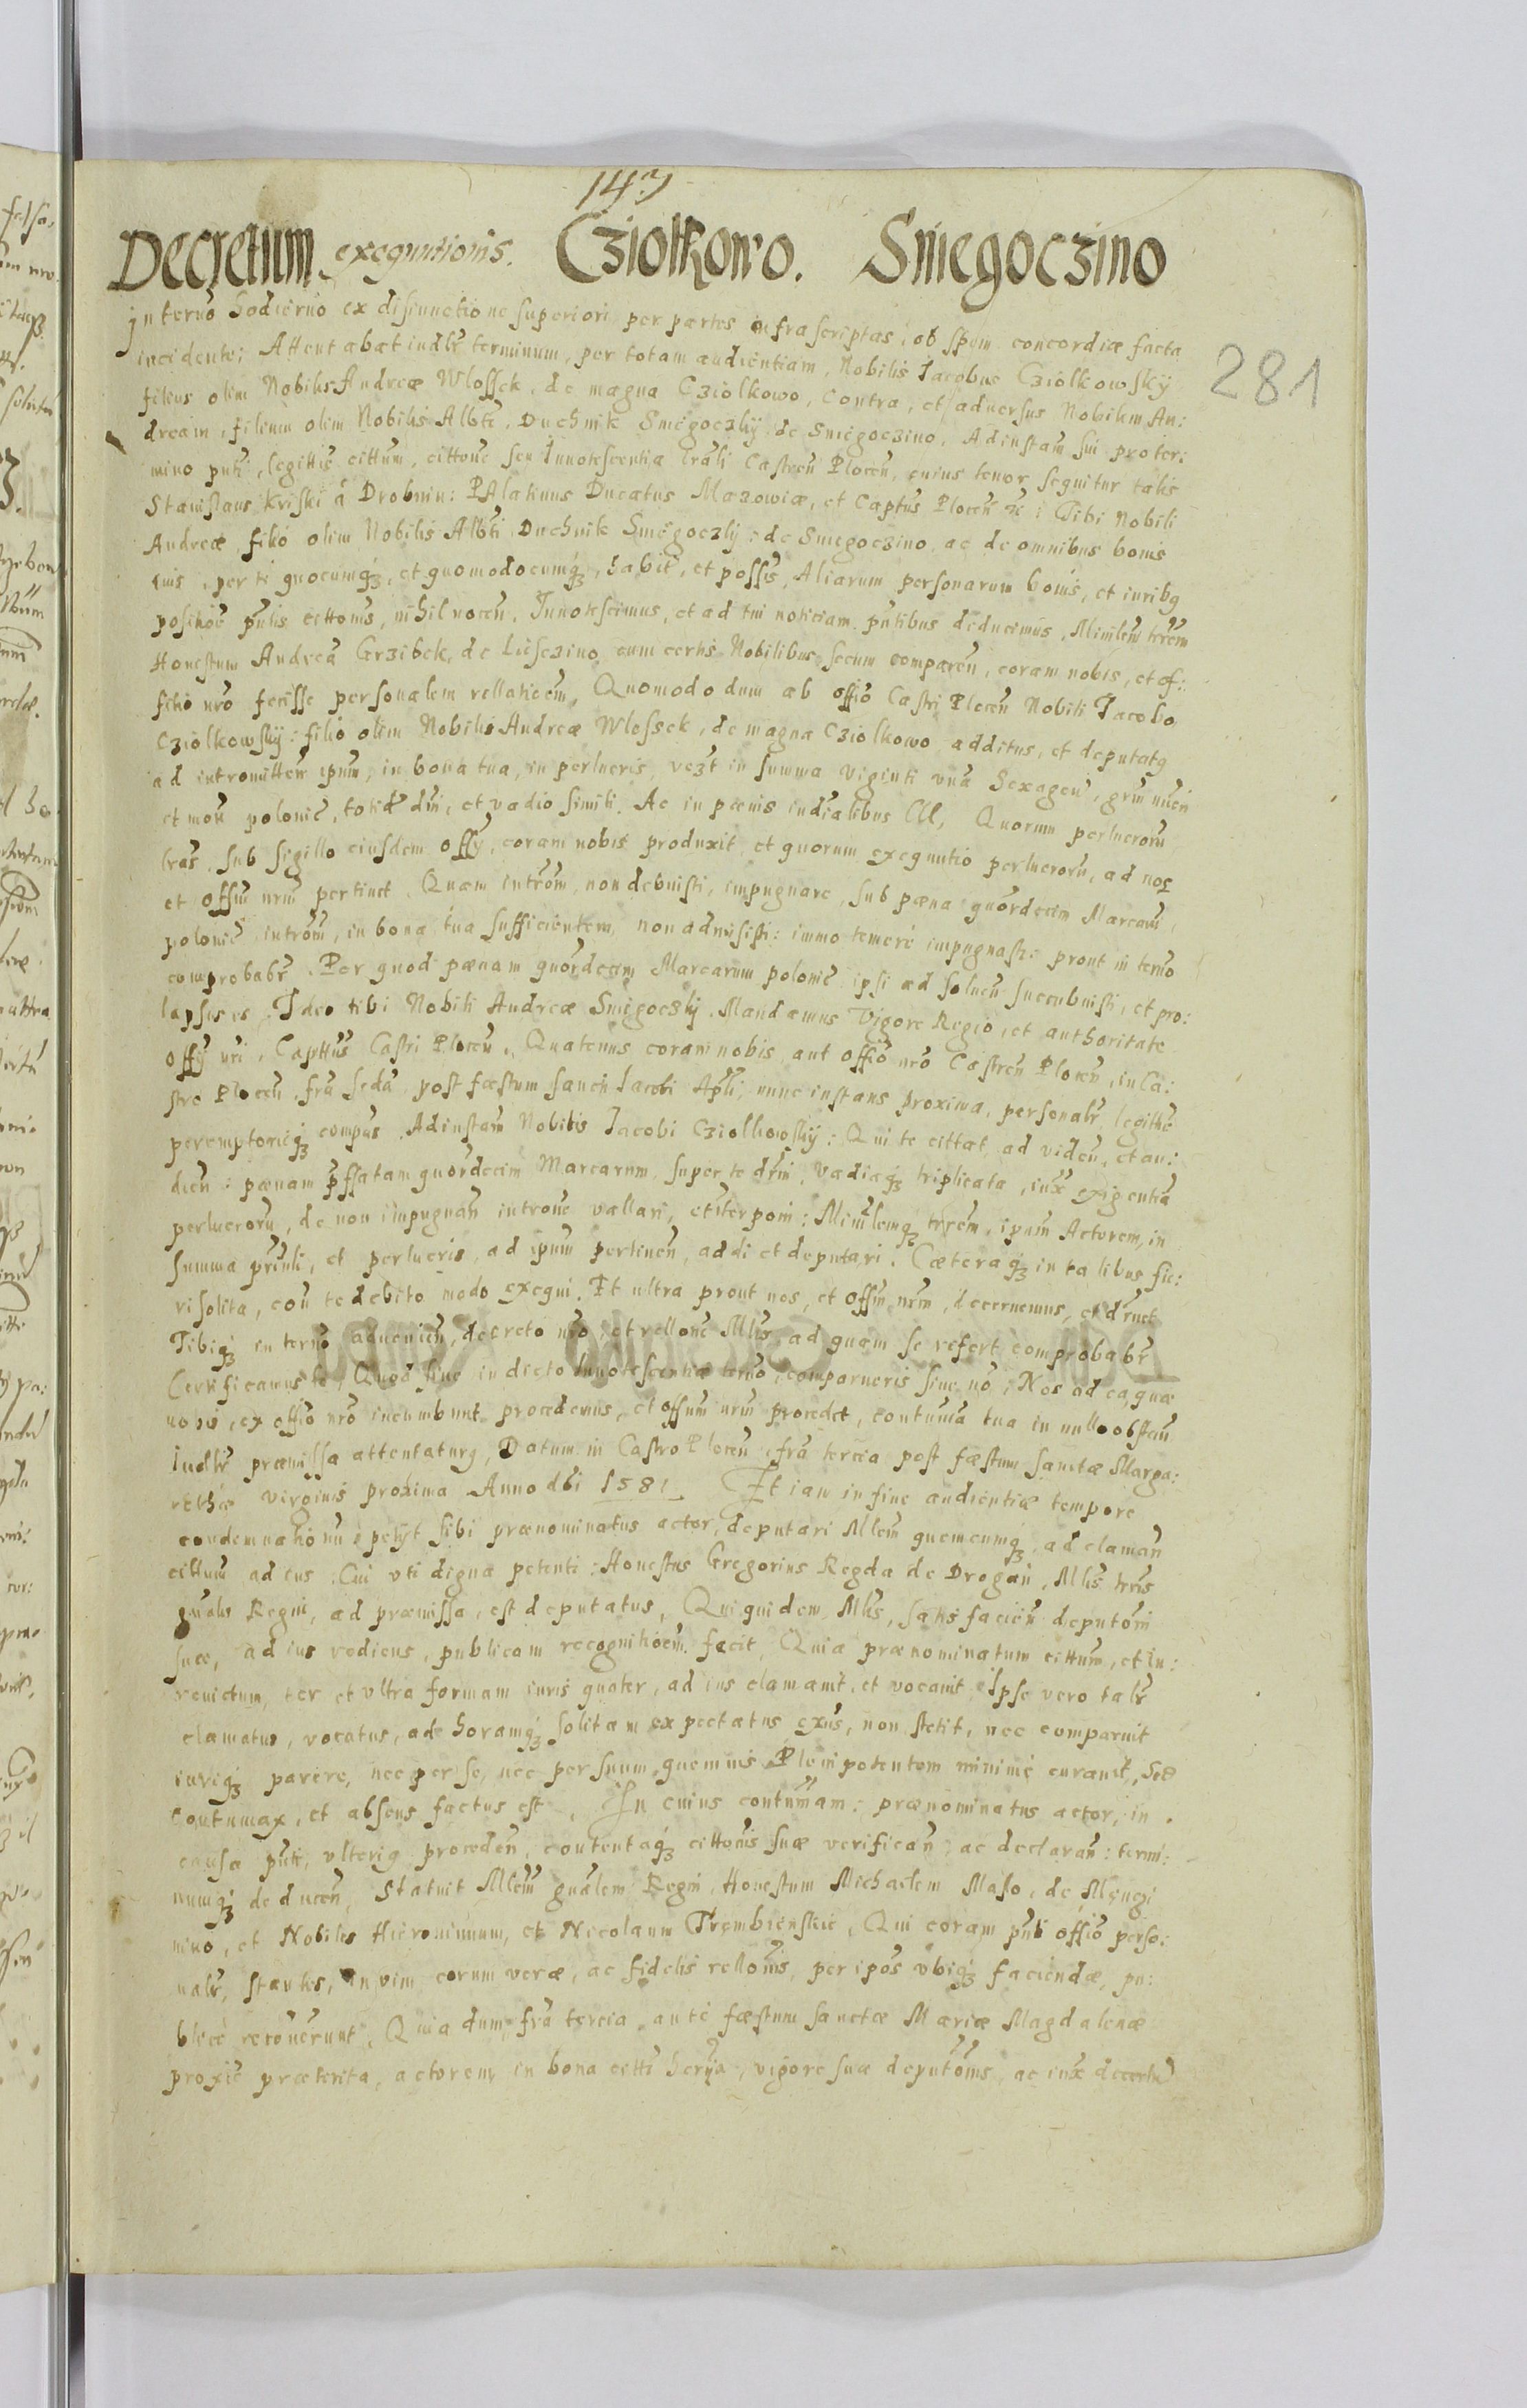 147
Decretum exequutionis. Cziolkowo. Sniegoczino
281
In terno hodierno ex disiunctione superiori per partes infrascriptas, ob spem concordiæ facta
incidente; Attentabat iudlr terminum, per totam audientiam, Nobilis Iacobus Cziolkowskÿ
filius olim Nobilis Andreæ Wlossek, de magna Cziolkowo, Contra, et aduersus Nobilem An:
dream, filium olim Nobilis Albti, Duchnik Sniegoczkÿ de Sniegoczino, Ad instam sui pro ter:
mino pnti, legittis cittum, cittone seu Innotescentia lrali Castren Plocen, cuius tenor sequitur talis
Stanislaus Kriski à Drobnin: PAlatinus Ducatus Mazowiæ, et Captus Plocen zc: Tibi Nobili
Andreæ filio olim Nobilis Albti Duchnik Sniegoczkÿ: de Sniegoczino, ac de omnibus bonis
tuis, per te quocumqz, et quomodocumqz, habit, et possis, Aliarum personarum bonis, et iuribq
posihoc pntis cittonis, nihil nocen. Innotescimus, et ad tui noticiam pntibus deducimus, Minlem trrem
Honestum Andreã Grzibek, de Liseczino, cum certis Nobilibus secum comparen, coram nobis, et of:
ficio nro fecisse personalem rellatioem, Quomodo dum ab offio Castri Plocen Nobili Iacobo
Cziolkowskÿ: filio olim Nobilis Andreæ Wlossek, de magna Cziolkowo additus, et deputatq
ad intromitten ipum, in bona tua, in perlucris, vezt in summa viginti vna Sexagen, grm num
et mon polonic, totid dni, et vadio simili. Ac in pœnis iudialibus CCC, Quorum perlucroru
lras, sub sigillo eiusdem offÿ, coram nobis produxit, et quorum exequutio perlucroru, ad nos
et offiu nrm pertinet. Quam introm, non debuisti, impugnare, sub pœna quordecim Marcaru,
polonic, introm, in bona tua sufficientem, non admisisti: immo temerè impugnasti: prout in terno
comprobabr. Per quod pœnam quordecim Marcarum polonic ipsi ad soluen succubuisti, et pro:
lapsus es. Ideo tibi Nobili Andreæ Sniegoczkÿ. Mandamus Vigore Regio, et authoritate
offÿ nri, Captus Castri Plocen. Quatenus coram nobis aut offio nro Castren Plocen, in Ca:
stro Plocen, fra scda post fæstum sancti Iacobi Apli, nunc instans proxima, personalr legitte
peremptorieqz compas, Ad instam Nobilis Iacobi Cziolkowskÿ: Qui te cittat, ad viden, et au:
dien: pœnam pffatam quordecim Marcarum, super te drni, vadiaqz triplicata, iux exigentia
perlucroru, de non impugnan introne vallari, et interponi: Minlemqz trrem, ipum Actorem, in
summa prinli, et perlucris, ad ipum pertinen, addi et deputari. Cæteraqz in talibus fie:
ri solita, con te debito modo exequi. Et ultra prout nos, et offiu nrm, decernemus, et drnet
Tibiqz in terno adueniem, decreto nro, et rellone Mlis, ad quam se refert, comprobabr
Certificamus te, Quod siue in dicto Innotescentiæ terno, comparueris siue nõ; Nos ad ea quæ
nobis, ex offio nro incumbunt procedemus, et offium nrm procedet, contuma tua in nullo obstan
Iudlr præmissa attentaturq, Datum in Castro Plocen, fra tercia post fæstum sanctæ Marga:
rethæ virginis proxima Anno dni 1581 Et iam in fine audientiæ tempore
condemnationu, petijt sibi prænominatus actor, deputari Mlem quemcumqz, ad claman
cittum ad ius. Cui vti digna petenti: Honestus Gregorius Regda de Drogan, Mlis terris
gnalis Regni, ad præmissa, est deputatus, Qui quidem Mlis, satisfacien deputoni
suæ, ad ius rediens, publicam recognitioem fecit, Quia prænominatum cittum, et lu:
reuictum, ter et vltra formam iuris quater, ad ius clamauit, et vocauit, Ipse vero talr
clamatus, vocatus, ad horamqz solitam expectatus exns, non stetit, nec comparuit
iuriqz parere, nec per se, nec per suum, quemuis Plenipotentem minimè curauit, Sed
contumax, et absens factus est. In cuius contumam: prænominatus actor, in
causa pnti, vlteriq proceden, contentaqz cittonis suæ verifican, ac declaran: termi:
numqz deducen, Statuit Mlem gnalem Regni, Honestum Michaelem Maslo, de Mlnczi
mino, et Nobiles Hieronimum, et Nicolaum Trembienskie, Qui coram pnti offio perso:
nalr, stantes, In vim eorum veræ, ac fidelis rellonis, per ipos vbiqz faciendæ, pu:
blicè recouerunt, Quia dum, fra tercia ante fæstum sanctæ Mariæ Magdalenæ
proxiè præterita, actorem, in bona citti herÿa, vigore suæ deputonis, ac iux decretu